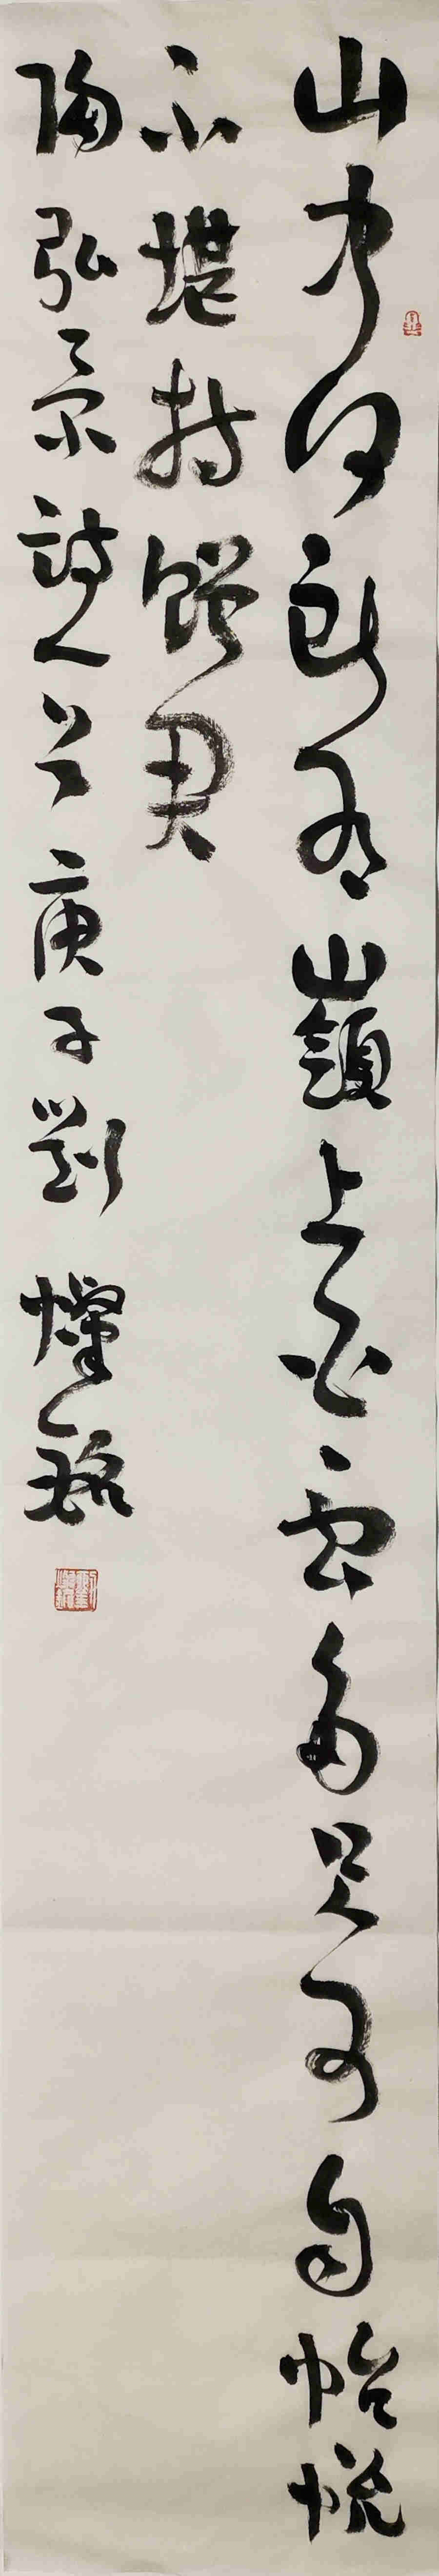 山中何所有嶺上白雲多只可自怡悅
不堪持贈君
陶弘景詩一首庚子劉燦銘